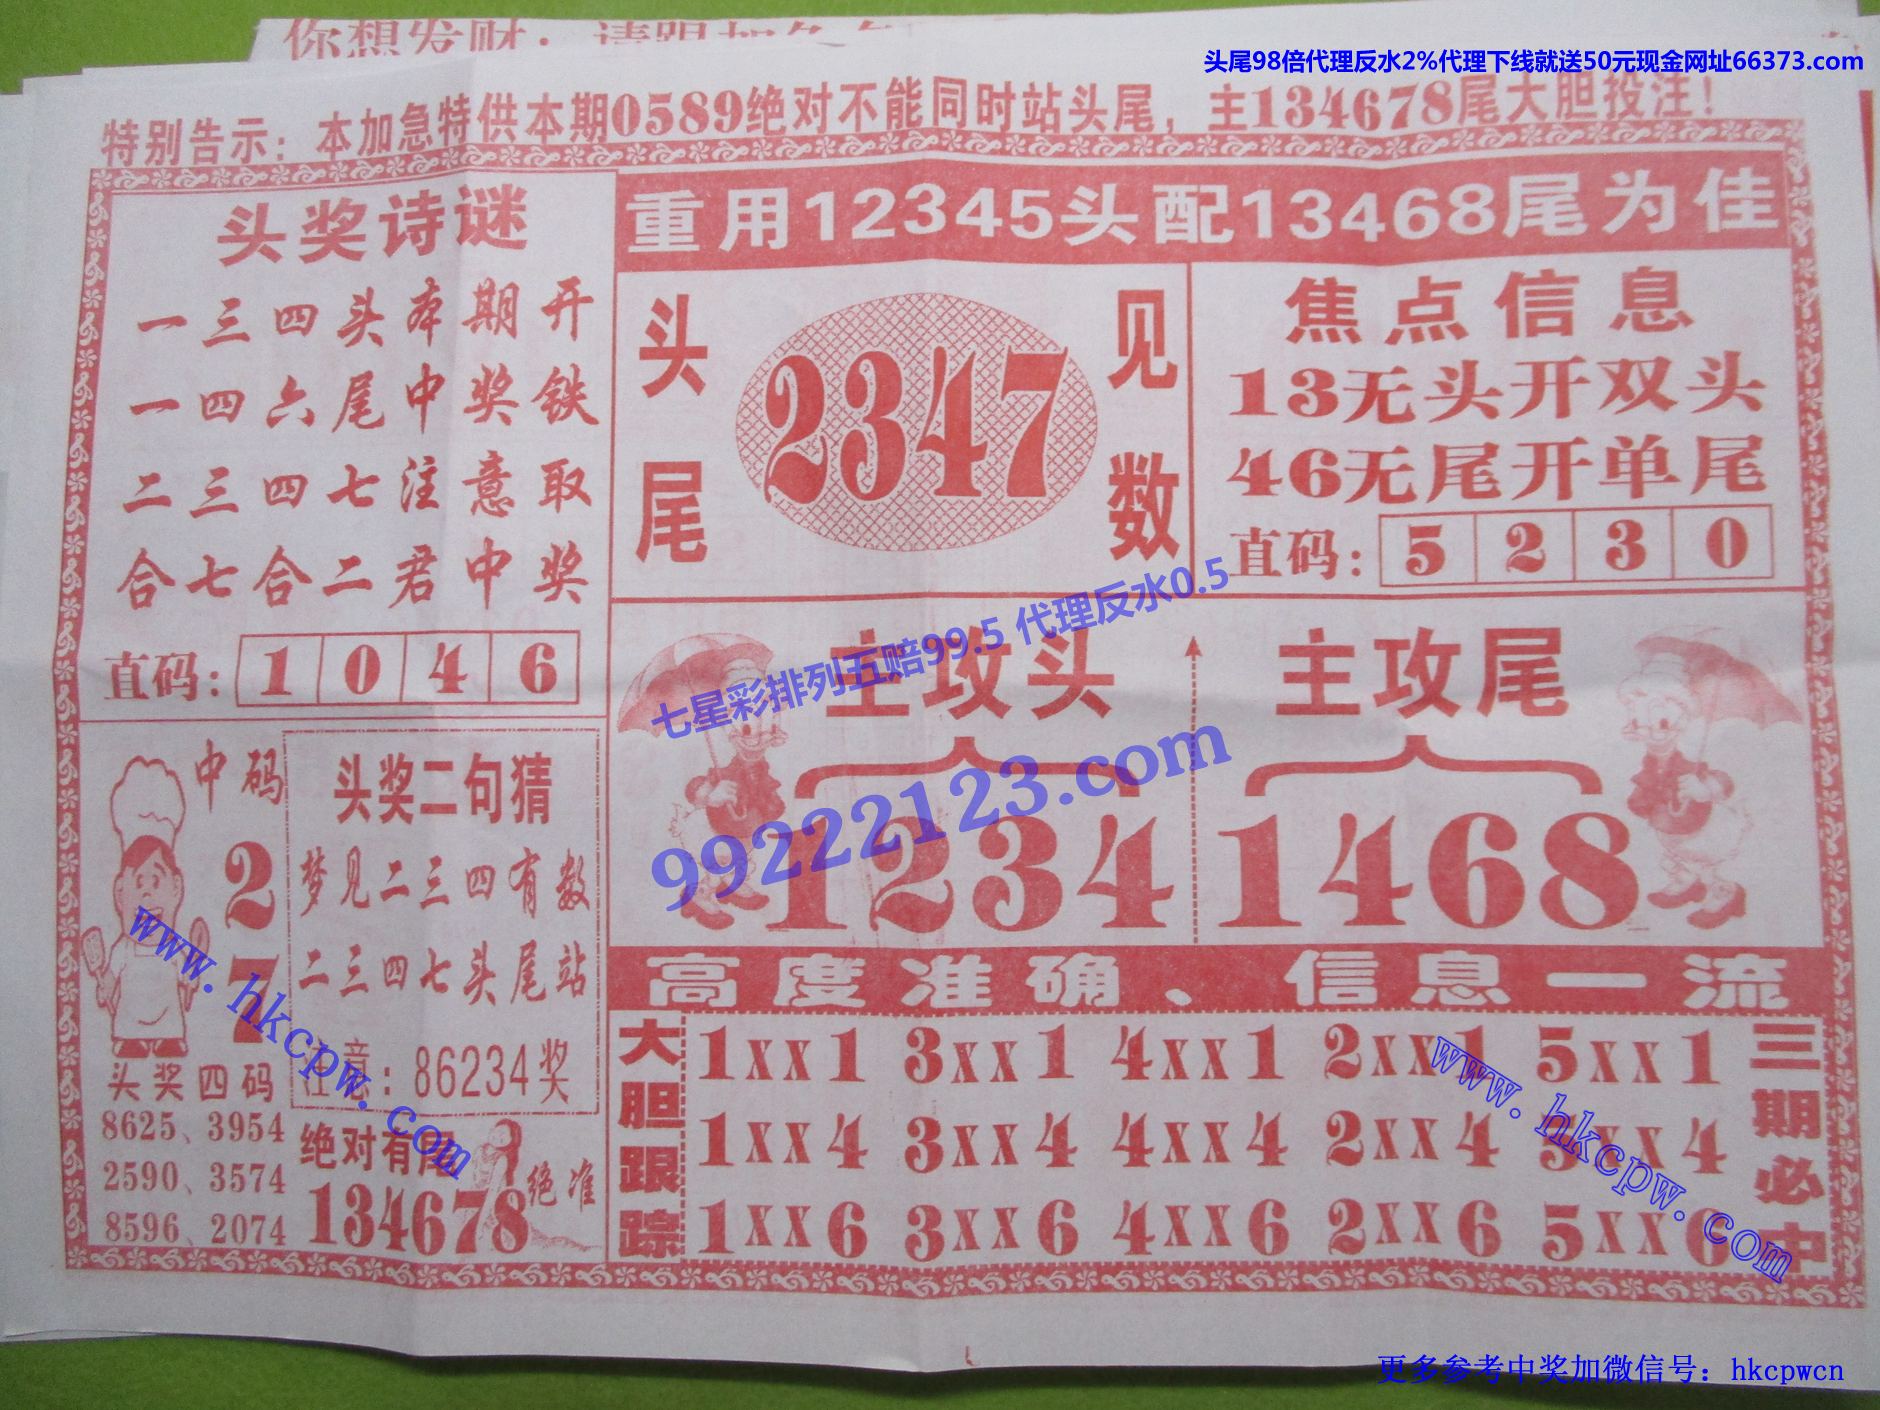 你想发财:请跟
头尾98倍代理反水2%代理下线就送50元现金网址66373.com
特别告示：本加急特供本期0589绝对不能同时站头尾，主134678尾大胆投注！
头奖诗谜
一三四头本期开
一四六尾中奖铁
二三四七注意取
合七合二君中奖
直码：1 0 4 6
重用12345头配13468尾为佳
头尾
2347
见数
焦点信息
13无头开双头
46无尾开单尾
直码：5 2 3 0
七星彩排列五赔99.5 代理反水0.5
99222123.com
主攻头
1234
主攻尾
1468
中码
2
7
头奖四码
8625、3954
2590、3574
8596、2074
头奖二句猜
梦见二三四有数
二三四七头尾站
注意：86234奖
绝对有尾
134678
绝准
www.hkcpw.com
高度准确、信息一流
大胆跟踪
1xx1 3xx1 4xx1 2xx1 5xx1
1xx4 3xx4 4xx4 2xx4 5xx4
1xx6 3xx6 4xx6 2xx6 5xx6
三期必中
www.hkcpw.com
更多参考中奖加微信号：hkcpwcn